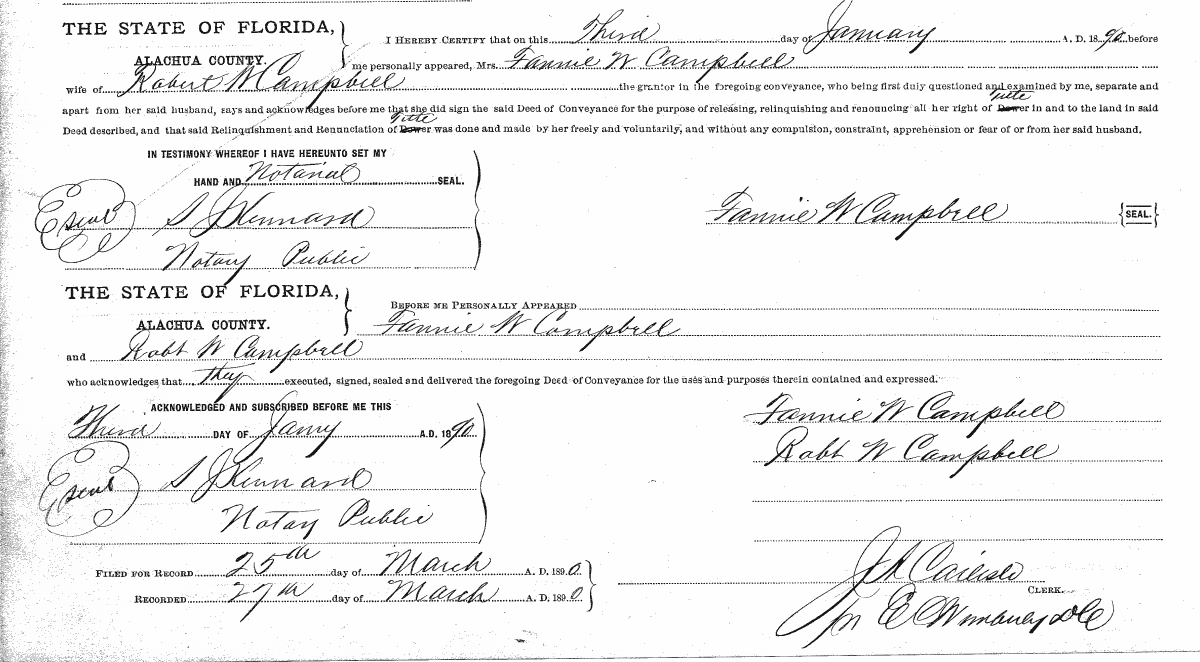 THE STATE OF FLORIDA,
ALACHUA COUNTY.
I HEREBY CERTIFY that on this Third day of January A. D. 1890 before
me personally appeared, Mrs. Fannie W Campbell
wife of Robert W Campbell the grantor in the foregoing conveyance, who being first duly questioned and examined by me, separate and
apart from her said husband, says and acknowledges before me that she did sign the said Deed of Conveyance for the purpose of releasing, relinquishing and renouncing all her right of Dower Title in and to the land in said
Deed described, and that said Relinquishment and Renunciation of Dower Title was done and made by her freely and voluntarily, and without any compulsion, constraint, apprehension or fear of or from her said husband.
IN TESTIMONY WHEREOF I HAVE HEREUNTO SET MY
HAND AND Notarial SEAL.
seal S J Kennard
Notary Public
Fannie W Campbell {SEAL.}
THE STATE OF FLORIDA,
ALACHUA COUNTY.
BEFORE ME PERSONALLY APPEARED
Fannie W Campbell
and Robt W Campbell
who acknowledges that they executed, signed, sealed and delivered the foregoing Deed of Conveyance for the uses and purposes therein contained and expressed.
ACKNOWLEDGED AND SUBSCRIBED BEFORE ME THIS
Third DAY OF Jany A.D. 1890
seal S J Kennard
Notary Public
Fannie W Campbell
Robt W Campbell
FILED FOR RECORD 25th day of March A. D. 1890
RECORDED 27th day of March A. D. 1890
J A Carlisle
CLERK.
pr E C